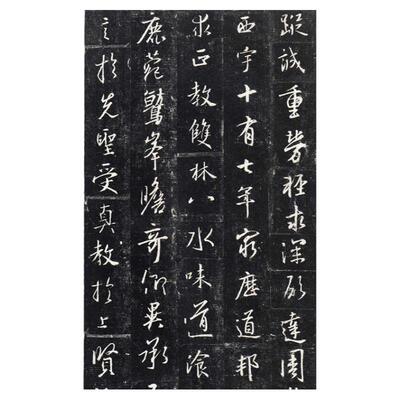 蹤誠重勞輕求深願達周
西宇十有七年窮歷道邦
求正教雙林八水味道飡
鹿苑鷲峯瞻奇仰異承
言於先聖受真教於上賢